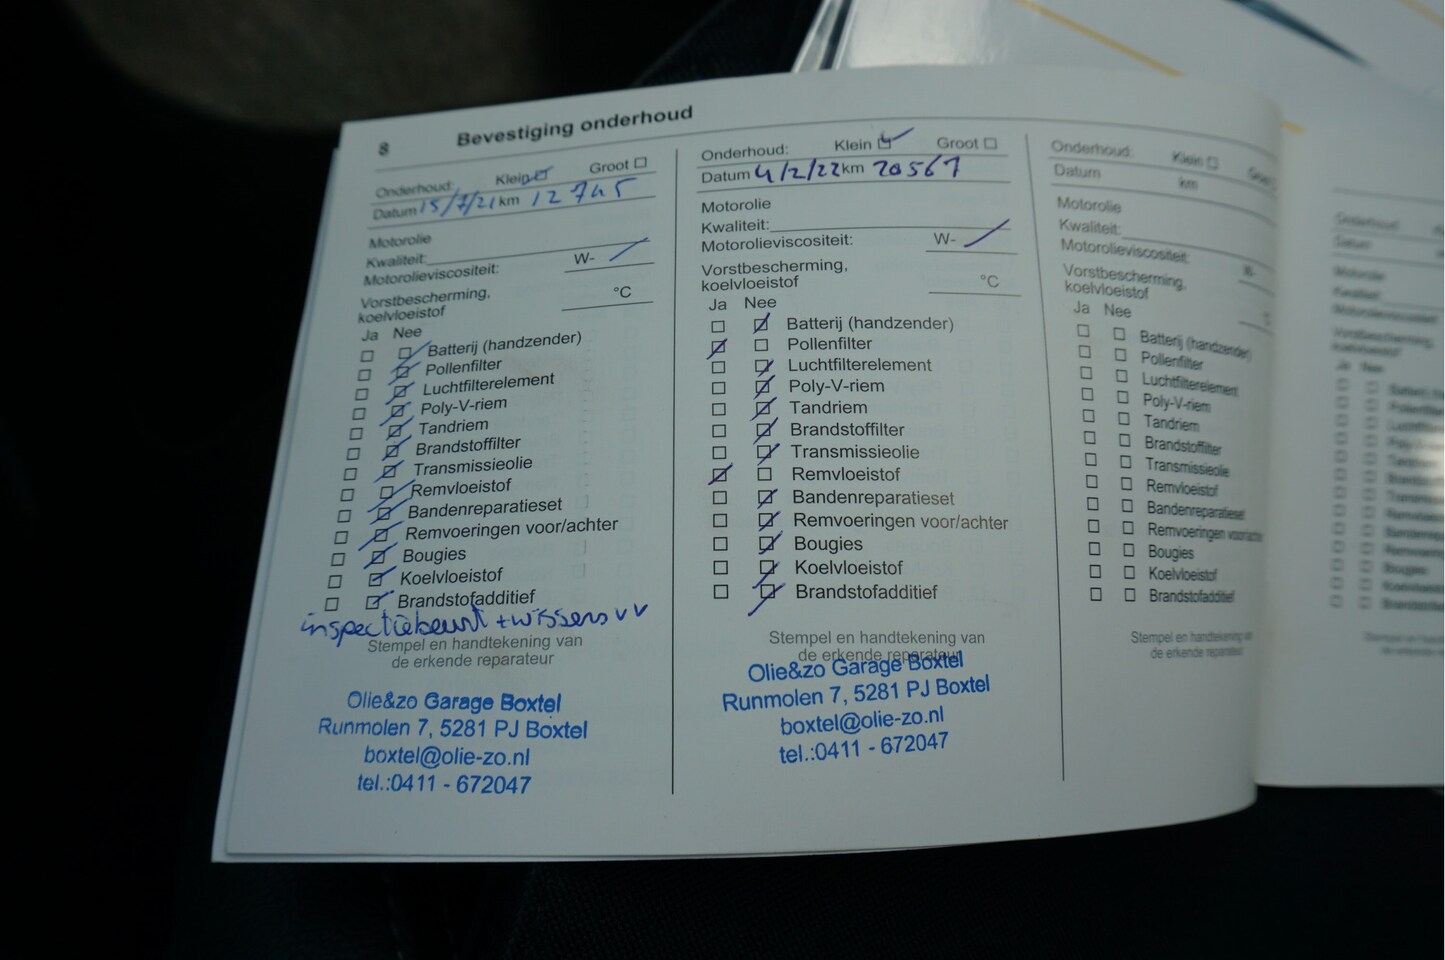 8 Bevestiging onderhoud
Onderhoud: Klein Groot
Datum 15/7/21 km 12745
Motorolie
Kwaliteit:
Motorolieviscositeit: W-
Vorstbescherming,
koelvloeistof °C
Ja Nee
Batterij (handzender)
Pollenfilter
Luchtfilterelement
Poly-V-riem
Tandriem
Brandstoffilter
Transmissieolie
Remvloeistof
Bandenreparatieset
Remvoeringen voor/achter
Bougies
Koelvloeistof
Brandstofadditief
inspectiebeurt + wissers vv
Stempel en handtekening van
de erkende reparateur
Olie&zo Garage Boxtel
Runmolen 7, 5281 PJ Boxtel
boxtel@olie-zo.nl
tel.:0411 - 672047
Onderhoud: Klein Groot
Datum 4/2/22 km 20567
Motorolie
Kwaliteit:
Motorolieviscositeit: W-
Vorstbescherming,
koelvloeistof °C
Ja Nee
Batterij (handzender)
Pollenfilter
Luchtfilterelement
Poly-V-riem
Tandriem
Brandstoffilter
Transmissieolie
Remvloeistof
Bandenreparatieset
Remvoeringen voor/achter
Bougies
Koelvloeistof
Brandstofadditief
Stempel en handtekening van
de erkende reparateur
Olie&zo Garage Boxtel
Runmolen 7, 5281 PJ Boxtel
boxtel@olie-zo.nl
tel.:0411 - 672047
Onderhoud: Klein
Datum km
Motorolie
Kwaliteit:
Motorolieviscositeit:
Vorstbescherming,
koelvloeistof
Ja Nee
Batterij (handzender)
Pollenfilter
Luchtfilterelement
Poly-V-riem
Tandriem
Brandstoffilter
Transmissieolie
Remvloeistof
Bandenreparatieset
Remvoeringen voor/achter
Bougies
Koelvloeistof
Brandstofadditief
Stempel en handtekening
de erkende reparateur